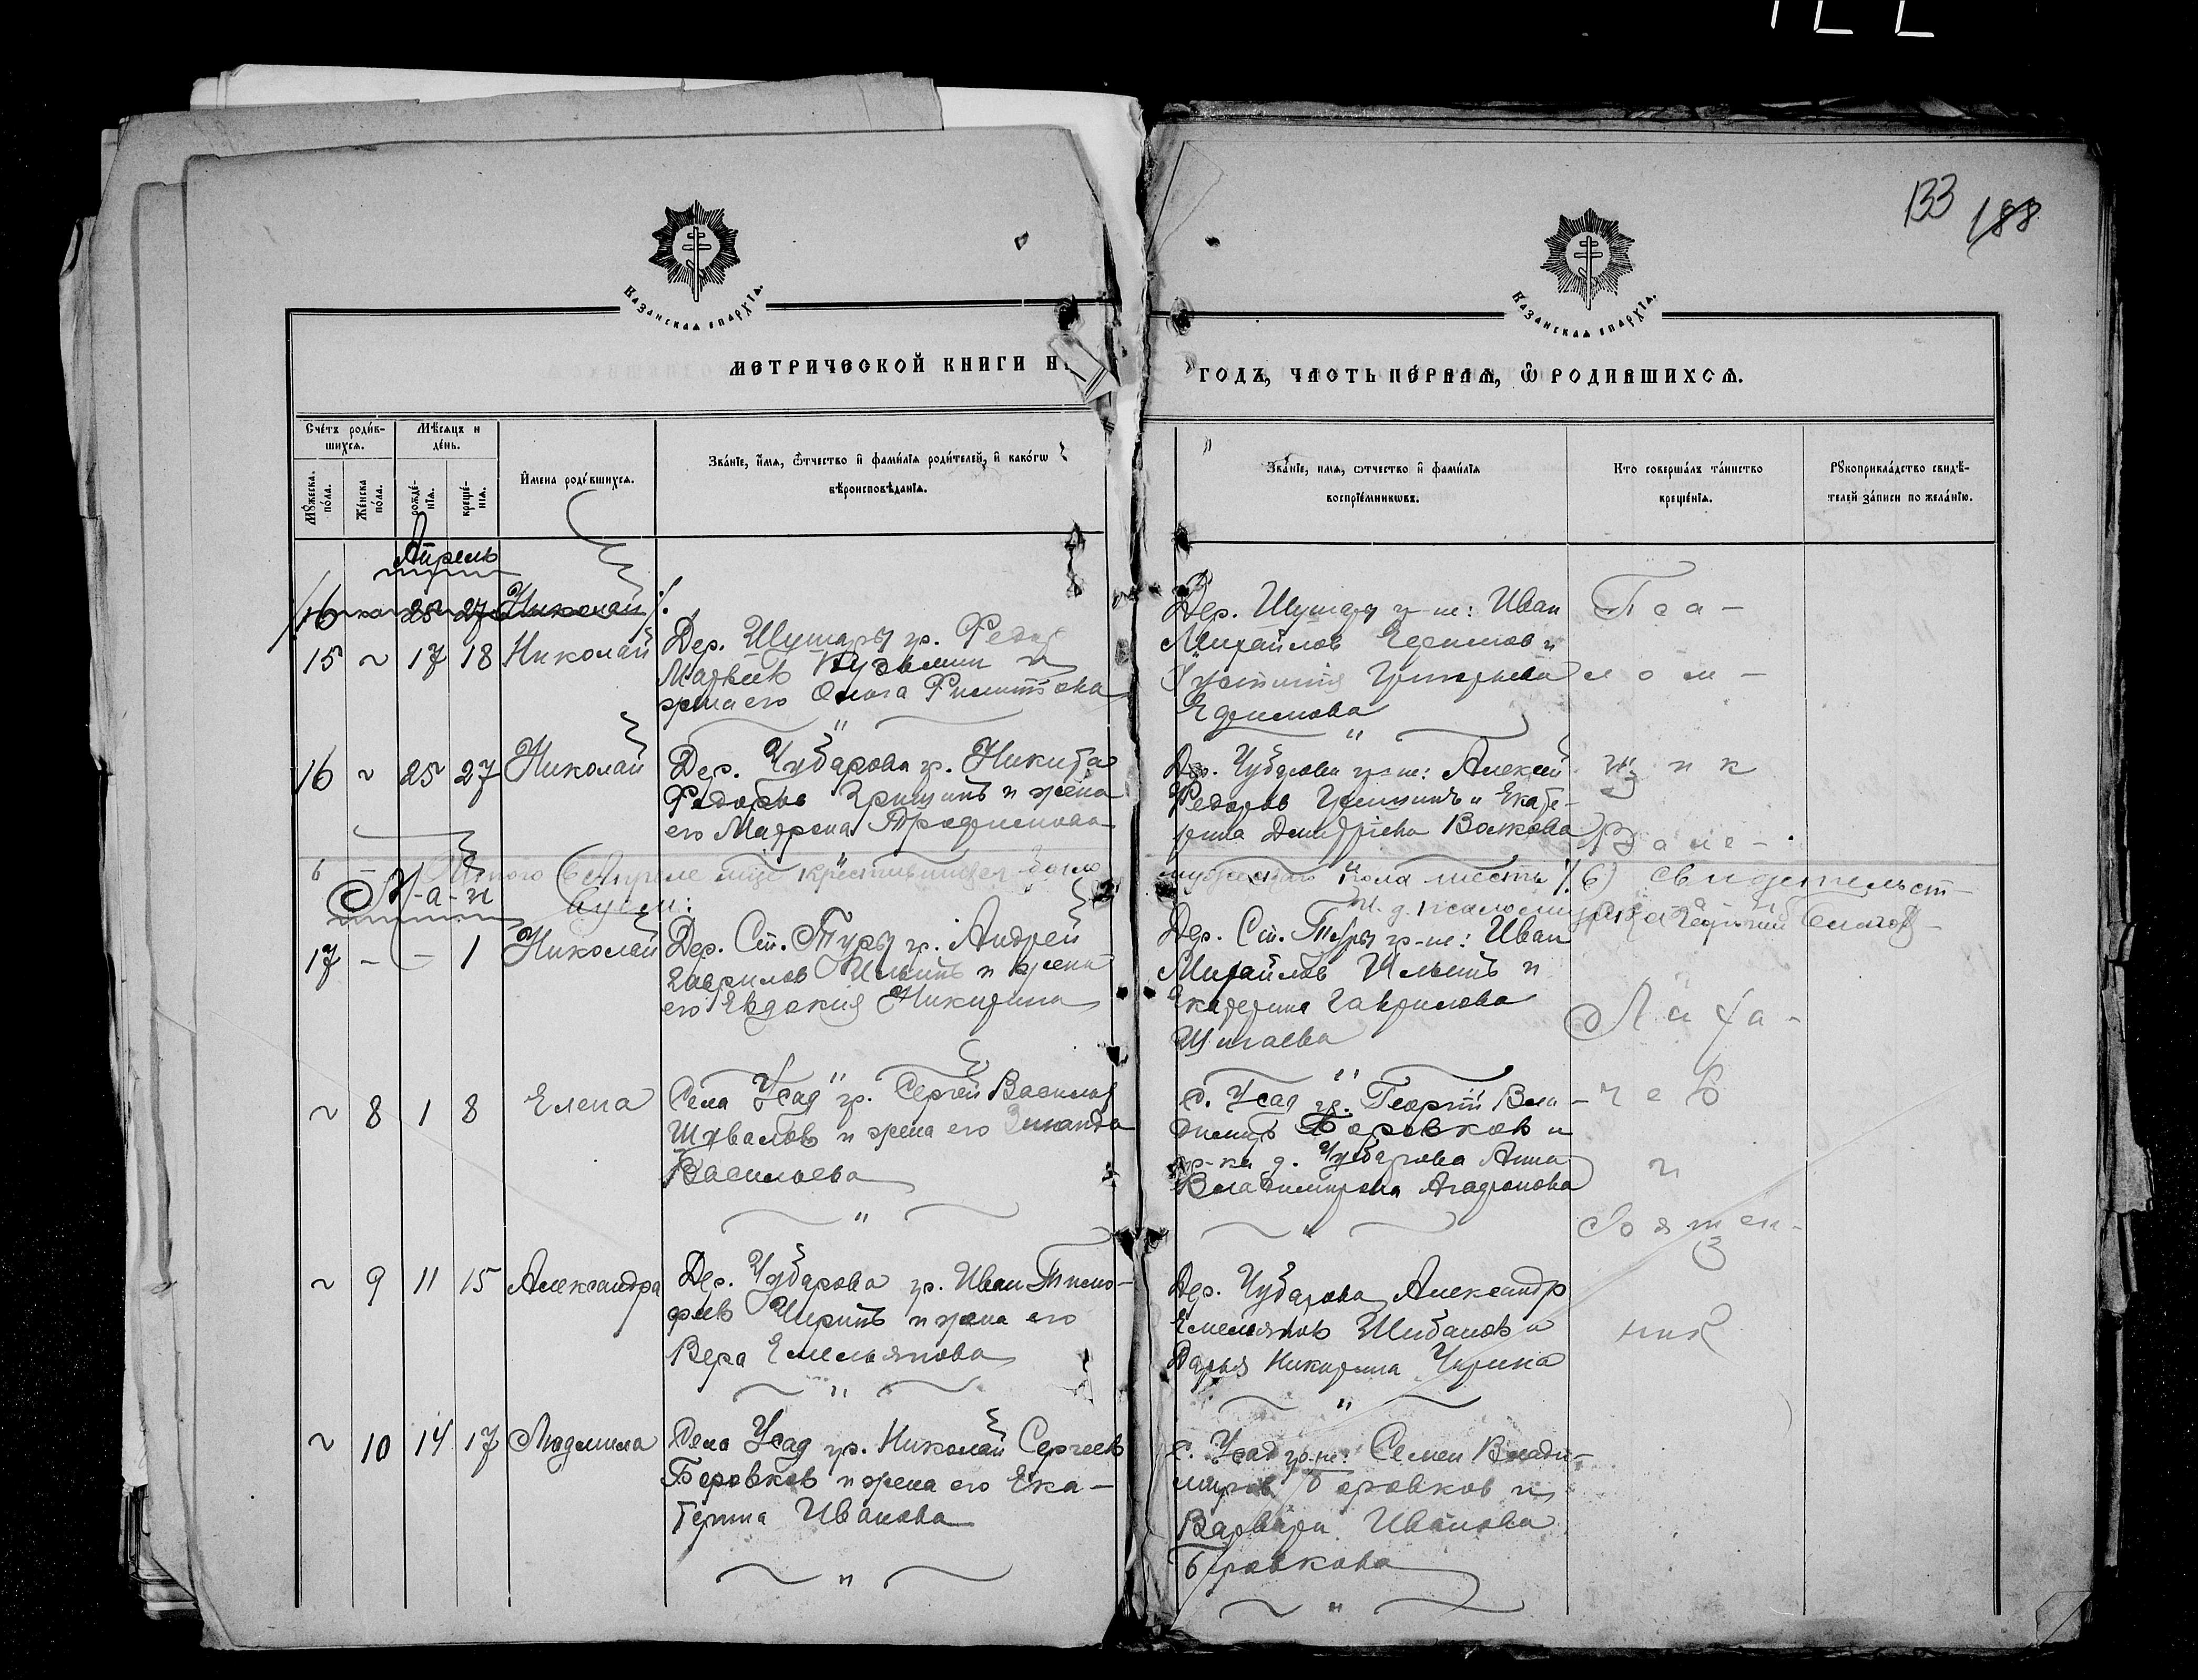 133 188
Казанская епархїя.
Казанская епархїя.
МЕТРИЧЕСКОЙ КНИГИ НА
ГОДЪ, ЧАСТЬ ПЕРВАЯ, Ѿ РОДИВШИХСЯ.
Счетъ родив-
шихся.
Мѣсяцъ и
день.
Мужеска
пола.
Женска
пола.
рожде-
нїя.
креще-
нїя.
Имена родившихся.
Званїе, имя, ѿтчество и фамилїя родителей, и какогѡ
вѣроисповѣданїя.
Званїе, имя, ѡтчество и фамилїя
воспрїемникѡвъ.
Кто совершалъ таинство
крещенїя.
Рукоприкладство свидѣ-
телей записи по желанїю.
Апрель
16 25 27 Николай
15 ~ 17 18 Николай
Дер. Шушары гр.
Матвеев Кузьмин и
жена его Филиппова
Дер. Шушары гр-не: Иван
Михайлов Ефимов и
Григорьева
Ефимова
Пса-
лом-
щик
16 ~ 25 27 Николай
Дер. Чубарова гр. Никита
Федоров Гришин и жена
его Матрена Трофимова
Дер. Чубарова гр-не: Алексей
Федоров Гришин и Екате-
рина Дмитриева Волкова
Итого в Апреле м-це крестившихся было
мужского пола шесть (6) свидетельст-
вуем:
И. д. псаломщика Георгий
М-а-й
17 - - 1 Николай
Дер. Ст. Туры гр. Андрей
Гаврилов Ильин и жена
его Евдокия Никитина
Дер. Ст. Туры гр-не: Иван
Михайлов Ильин и
Екатерина Гаврилова
~ 8 1 8 Елена
Села Усад гр. Сергей Васильев
Шувалов и жена его Зинаида
Васильева
с. Усад гр. Георгий Вла-
димир Боровков и
гр-ка д. Чубарова Анна
Владимирова Агафонова
чев
и
Священ-
ник
~ 9 11 15 Александра
Дер. Чубарова гр. Иван Тимо-
феев Чирин и жена его
Вера Емельянова
Дер. Чубарова Александр
Емельянов Шибанов и
Дарья Никитина Чирина
~ 10 14 17 Людмила
Села Усад гр. Николай Сергеев
Боровков и жена его Ека-
терина Иванова
с. Усад гр-не: Семен Влади-
миров Боровков и
Варвара Иванова
Боровкова